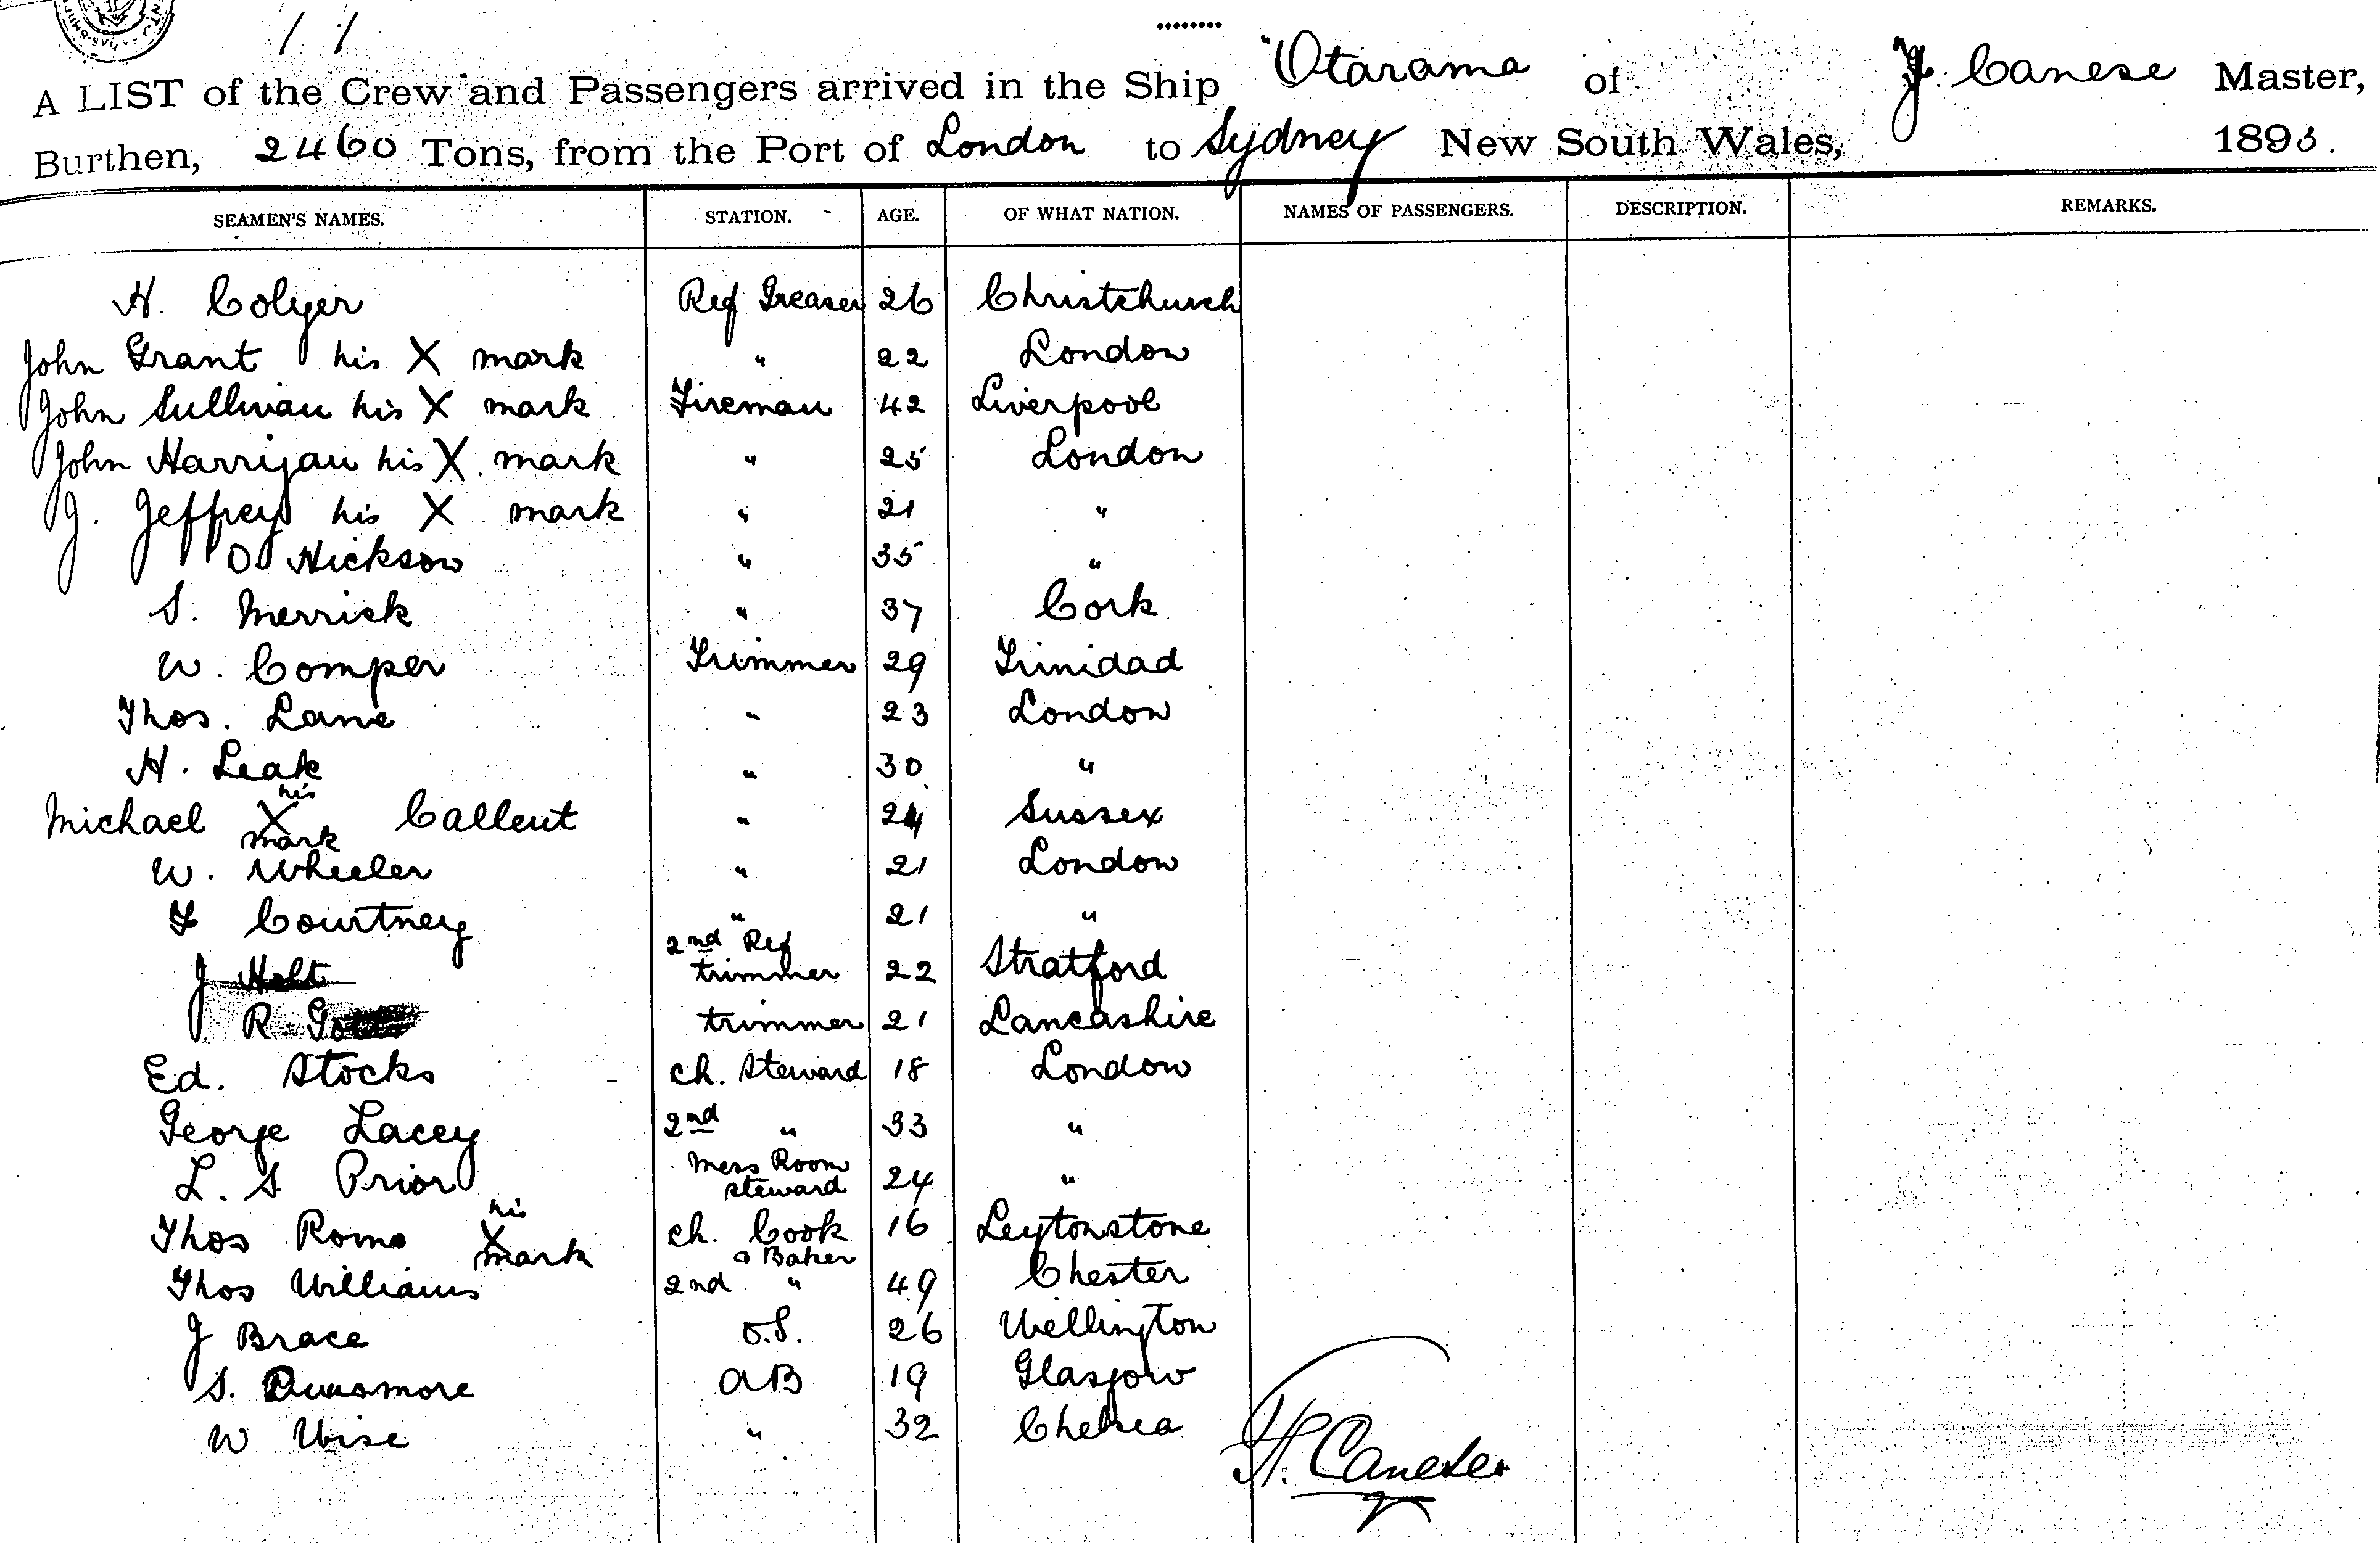 A LIST of the Crew and Passengers arrived in the Ship "Otarama of J. Canese Master,
Burthen, 2460 Tons, from the Port of London to Sydney New South Wales, 1893.
SEAMEN'S NAMES. STATION. AGE. OF WHAT NATION. NAMES OF PASSENGERS. DESCRIPTION. REMARKS.
H. Colyer Ref Greaser 26 Christchurch
John Grant his X mark " 22 London
John Sullivan his X mark Fireman 42 Liverpool
John Harrigan his X mark " 25 London
J. Jeffrey his X mark " 21 "
D Hickson " 35 "
S. Merrick " 37 Cork
W. Comper Trimmer 29 Trinidad
Thos. Lane " 23 London
H. Leak " 30 "
Michael his X mark Callent " 24 Sussex
W. Wheeler " 21 London
F Courtney " 21 "
J Holt 2nd Ref trimmer 22 Stratford
R trimmer 21 Lancashire
Ed. Stocks ch. Steward 18 London
George Lacey 2nd " 33 "
L. S Prior Mess Room steward 24 "
Thos Rome his X mark ch. Cook & Baker 16 Leytonstone
Thos Williams 2nd " 49 Chester
J Brace O.S. 26 Wellington
S. Dunsmore AB 19 Glasgow
W Wise " 32 Chelsea